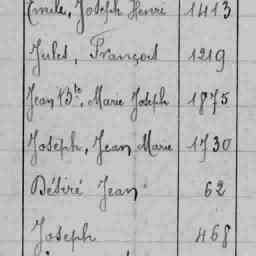 Emile, Joseph Henri 1413
Jules, François 1219
Jean Bte, Marie Joseph 1875
Joseph, Jean Marie 1730
Désiré Jean 62
Joseph 468